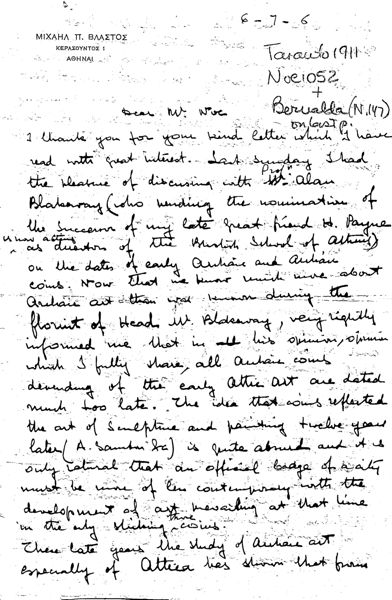 6-7-6
ΜΙΧΑΗΛ Π. ΒΛΑΣΤΟΣ
ΚΕΡΑΣΟΥΝΤΟΣ 1
ΑΘΗΝΑΙ
Taranto 1911
Noe 1052
+
Bervalda (N.147)
on last p.
Dear Mr. Noe
I thank you for your kind letter which I have
read with great interest. Last Sunday I had
the pleasure of discussing with Prof. Alan
Blakeway (who pending the nomination of
the successor of my late great friend H. Payne
is now acting
as director of the British School of Athens)
on the dates of early Archaic and Archaic
coins. Now that we know much more about
Archaic art than was known during the
of Head Mr. Blakeway, very rightly
informed me that in his opinion, opinion
which I fully share, all Archaic coins
depending of the early Attic Art are dated
much too late. The idea that coins reflected
the art of Sculpture and painting twelve years
later (A. Sambon ) is quite absurd and it is
only natural that an official badge of a city
must be more or less contemporary with the
development of art prevailing at that time
in the city striking those coins.
These late years the study of Archaic art
especially of Attica has shown that from